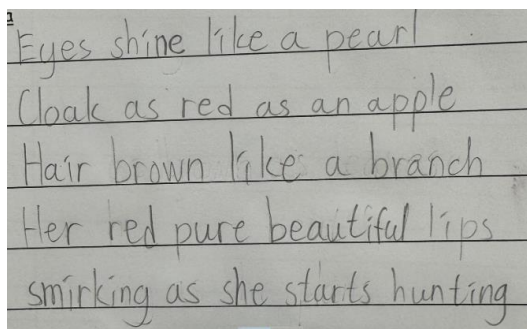 Eyes shine like a pearl
Cloak as red as an apple
Hair brown like a branch
Her red pure beautiful lips
smirking as she starts hunting